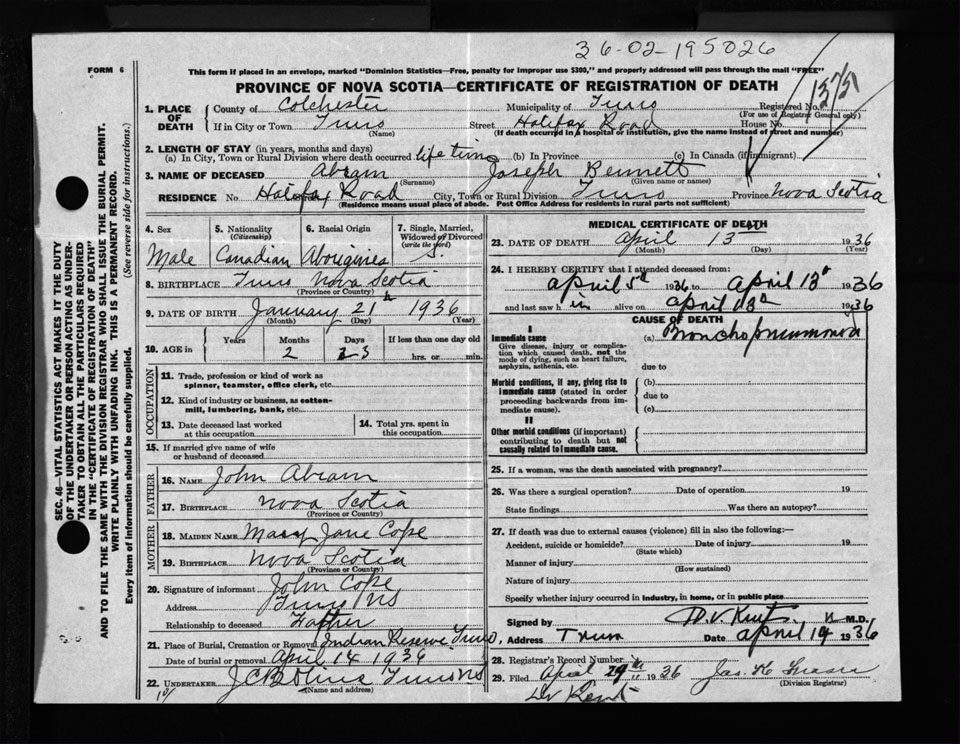 36-02-195026
FORM 6
This form if placed in an envelope, marked "Dominion Statistics—Free, penalty for improper use $300," and properly addressed will pass through the mail "FREE"
PROVINCE OF NOVA SCOTIA—CERTIFICATE OF REGISTRATION OF DEATH
1. PLACE OF DEATH County of Colchester Municipality of Truro Registered No.
(For use of Registrar General only)
If in City or Town Truro Street Halifax Road House No.
(Name) (If death occurred in a hospital or institution, give the name instead of street and number)
2. LENGTH OF STAY (in years, months and days)
(a) In City, Town or Rural Division where death occurred life time (b) In Province (c) In Canada (if immigrant)
3. NAME OF DECEASED Abram Joseph Bennett
(Surname) (Given name or names)
RESIDENCE No Halifax Road City, Town or Rural Division Truro Province Nova Scotia
(Residence means usual place of abode. Post Office Address for residents in rural parts not sufficient)
4. Sex 5. Nationality (Citizenship) 6. Racial Origin 7. Single, Married, Widowed or Divorced (write the word)
Male Canadian Aborigines S.
8. BIRTHPLACE Truro Nova Scotia
(Province or Country)
9. DATE OF BIRTH January 21 1936
(Month) (Day) (Year)
10. AGE in Years Months Days If less than one day old
2 23 hrs. or min.
OCCUPATION
11. Trade, profession or kind of work as spinner, teamster, office clerk, etc.
12. Kind of industry or business, as cotton-mill, lumbering, bank, etc.
13. Date deceased last worked at this occupation
14. Total yrs. spent in this occupation
15. If married give name of wife or husband of deceased
FATHER
16. NAME John Abram
17. BIRTHPLACE Nova Scotia
(Province or Country)
MOTHER
18. MAIDEN NAME Mary Jane Cope
19. BIRTHPLACE Nova Scotia
(Province or Country)
20. Signature of informant John Cope
Address Truro NS
Relationship to deceased Father
21. Place of Burial, Cremation or Removal Indian Reserve Truro
Date of burial or removal April 14 1936
22. UNDERTAKER Truro NS
(Name and address)
MEDICAL CERTIFICATE OF DEATH
23. DATE OF DEATH April 13th 1936
(Month) (Day) (Year)
24. I HEREBY CERTIFY that I attended deceased from:
April 5th 1936 to April 13th 1936
and last saw him alive on April 13th 1936
CAUSE OF DEATH
I
Immediate cause
Give disease, injury or complication which caused death, not the mode of dying, such as heart failure, asphyxia, asthenia, etc.
(a) Bronchopneumonia
due to
Morbid conditions, if any, giving rise to immediate cause (stated in order proceeding backwards from immediate cause).
(b)
due to
(c)
II
Other morbid conditions (if important) contributing to death but not causally related to immediate cause.
25. If a woman, was the death associated with pregnancy?
26. Was there a surgical operation? Date of operation 19
State findings Was there an autopsy?
27. If death was due to external causes (violence) fill in also the following:—
Accident, suicide or homicide? Date of injury 19
(State which)
Manner of injury
(How sustained)
Nature of injury
Specify whether injury occurred in industry, in home, or in public place
Signed by D.V. Kent M.D.
Address Truro Date April 14 1936
28. Registrar's Record Number
29. Filed April 1936
(Division Registrar)
Dr Kent
SEC. 46—VITAL STATISTICS ACT MAKES IT THE DUTY
OF THE UNDERTAKER OR PERSON ACTING AS UNDER-
TAKER TO OBTAIN ALL THE PARTICULARS REQUIRED
IN THE "CERTIFICATE OF REGISTRATION OF DEATH"
AND TO FILE THE SAME WITH THE DIVISION REGISTRAR WHO SHALL ISSUE THE BURIAL PERMIT.
WRITE PLAINLY WITH UNFADING INK. THIS IS A PERMANENT RECORD.
Every item of information should be carefully supplied. (See reverse side for instructions.)